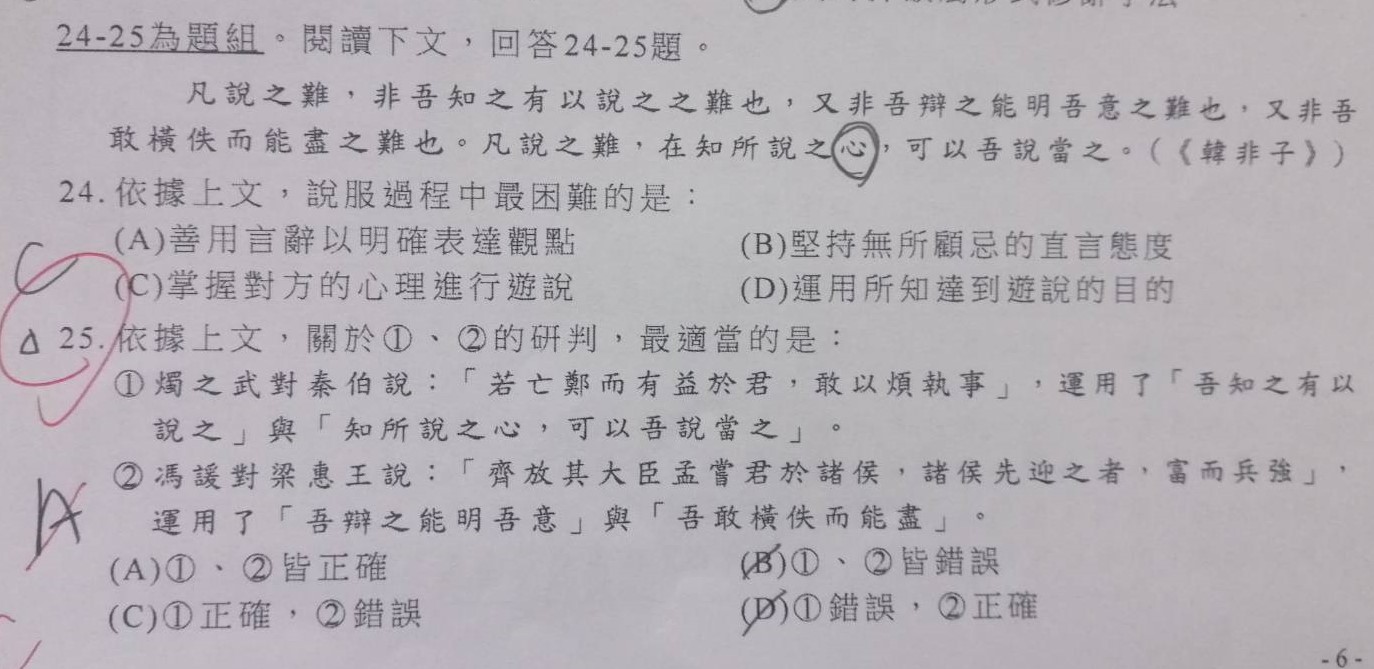 24-25為題組。閱讀下文，回答24-25題。
凡說之難，非吾知之有以說之之難也，又非吾辯之能明吾意之難也，又非吾
敢橫佚而能盡之難也。凡說之難，在知所說之心，可以吾說當之。(《韓非子》)
24.依據上文，說服過程中最困難的是：
(A)善用言辭以明確表達觀點 (B)堅持無所顧忌的直言態度
C (C)掌握對方的心理進行遊說 (D)運用所知達到遊說的目的
△ 25.依據上文，關於①、②的研判，最適當的是：
①燭之武對秦伯說：「若亡鄭而有益於君，敢以煩執事」，運用了「吾知之有以
說之」與「知所說之心，可以吾說當之」。
②馮諼對梁惠王說：「齊放其大臣孟嘗君於諸侯，諸侯先迎之者，富而兵強」，
運用了「吾辯之能明吾意」與「吾敢橫佚而能盡」。
A
(A)①、②皆正確 (B)①、②皆錯誤
(C)①正確，②錯誤 (D)①錯誤，②正確
-6-